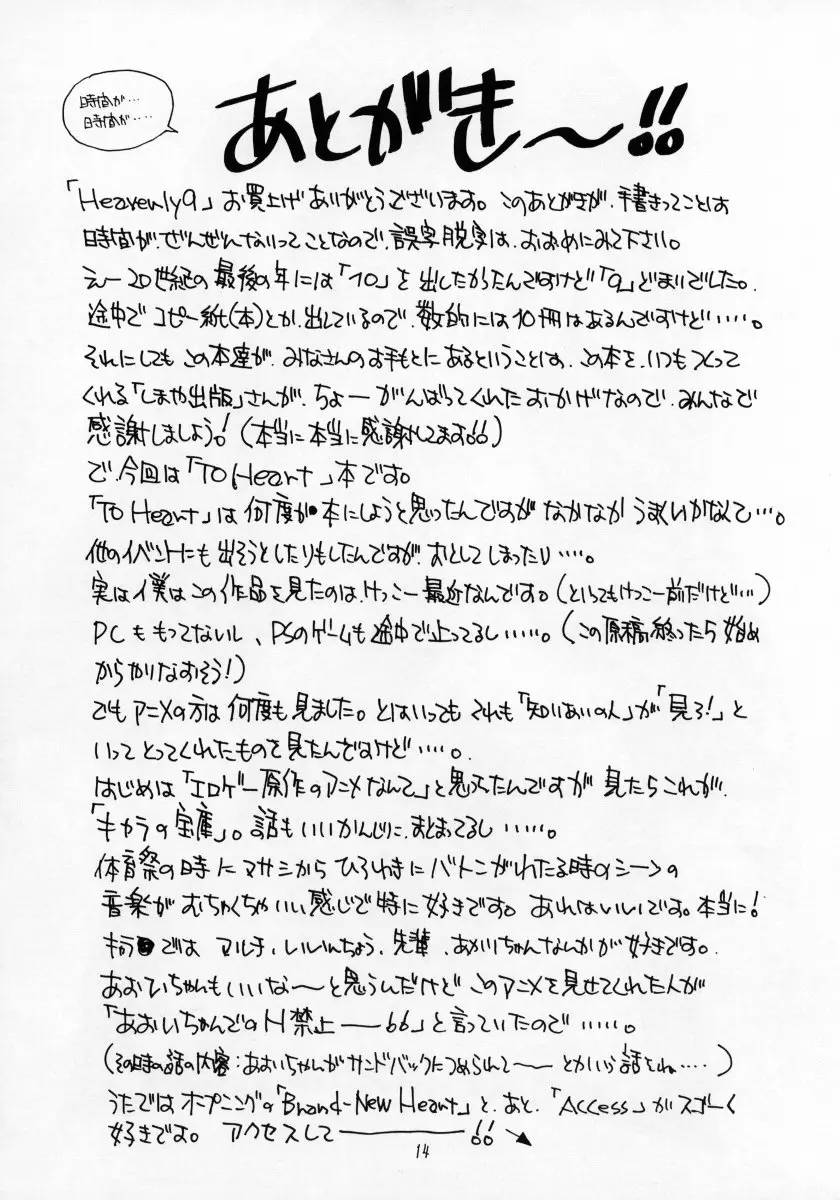 時間が…
時間が‥‥
あとがき〜!!
「Heavenly9」お買上げありがとうございます。このあとがきが、手書きってことは
時間が、ぜんぜんないってことなので、誤字脱字は、おおめにみて下さい。
えー20世紀の最後の年には「10」を出したかったんですけど「9」どまりでした。
途中でコピー紙(本)とか、出しているので、数的には10冊はあるんですけど‥‥‥。
それにしてもこの本達が、みなさんのお手もとにあるということは、この本を、いつもつくって
くれる「しまや出版」さんが、ちょーがんばってくれたおかげなので、みんなで
感謝しましよう!(本当に本当に感謝してます!!)
で、今回は「TO Heart」本です。
「TO Heart」は何度か本にしようと思ったんですがなかなかうまくいかなくて…。
他のイベントにも出そうとしたりもしたんですが、おとしてしまったり‥‥。
実は僕はこの作品を見たのは、けっこー最近なんです。(といってもけっこー前だけど…)
PCももってないし、PSのゲームも途中で止ってるし‥‥‥。(この原稿終ったら始め
からやりなおそう!)
でもアニメの方は何度も見ました。とはいってもそれも「知りあいの人」が「見ろ!」と
いってとってくれたものを見たんですけど‥‥。
はじめは「エロゲー原作のアニメなんて」と思ってたんですが見たらこれが、
「キャラの宝庫」。話もいいかんじに、まとまってるし‥‥‥。
体育祭の時にマサシからひろゆきにバトンがわたる時のシーンの
音楽がむちゃくちゃいい感じで特に好きです。あれはいいです。本当に!
キャラでは マルチ、いいんちょう、先輩、あかりちゃんなんかが好きです。
あおいちゃんもいいな〜と思うんだけどこのアニメを見せてくれた人が
「あおいちゃんでのH禁止──!!」と言っていたので‥‥‥。
(その時の話の内容:あおいちゃんがサンドバックにつめられて──とかいう話をね‥‥)
うたではオープニングの「Brand-New Heart」と、あと、「Access」がスゴーく
好きです。 アクセスして────!!
14